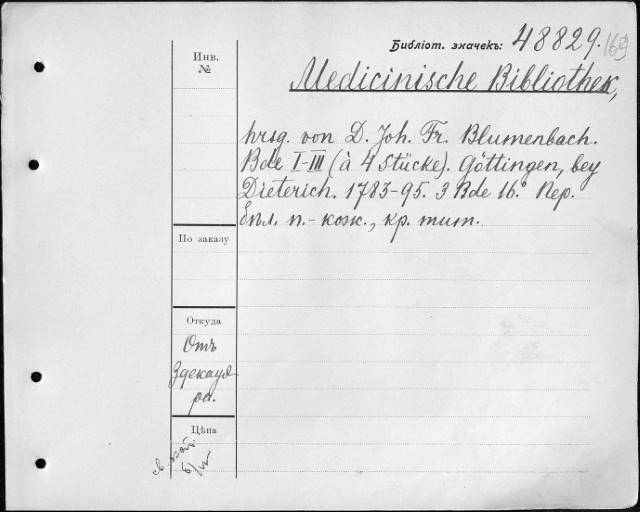 Библіот. значекъ: 48829.
Инв. №
Medicinische Bibliothek,
hrsg. von D. Joh. Fr. Blumenbach.
Bde I-III (à 4 Stücke). Göttingen, bey
Dieterich. 1783-95. 3 Bde 16.° Пер.
бѣл. п.-кож., кр. тит.
По заказу
Откуда
Отъ
Здекауэ-
ра.
Цѣна